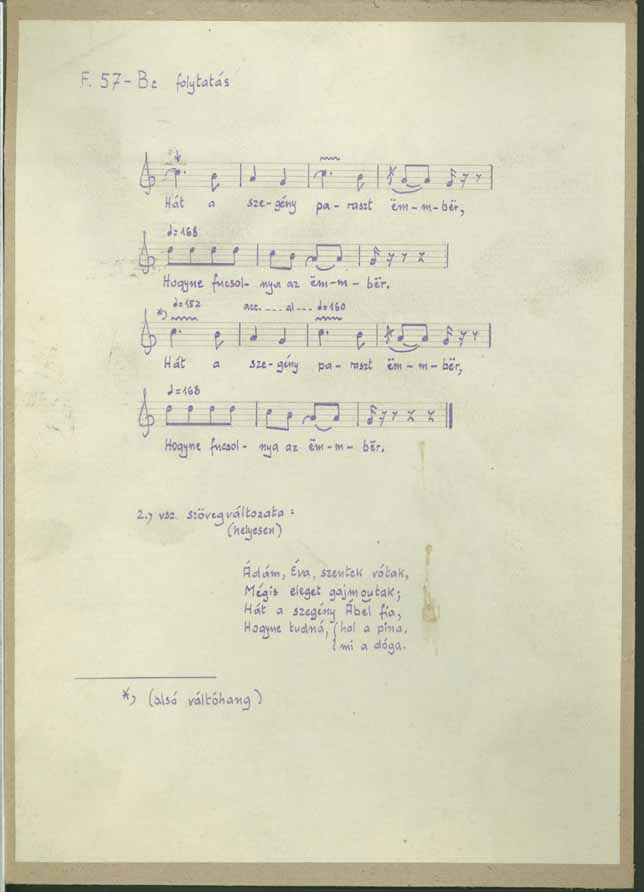 F. 57-Bc folytatás
Hát a sze-gény pa-raszt ëm-m-bër,
♩=168
Hogyne fucsol-nya az ëm-m-bër.
♩=152 acc.....al....♩=160
*)
Hát a sze-gény pa-raszt ëm-m-bër,
♩=168
Hogyne fucsol-nya az ëm-m-bër.
2., vsz. szövegváltozata:
(helyesen)
Ádám, Éva, szentek vótak,
Mégis eleget gajmoytak;
Hát a szegény Ábel fia,
Hogyne tudná, {hol a pina.
{mi a dóga.
*, (alsó váltóhang)